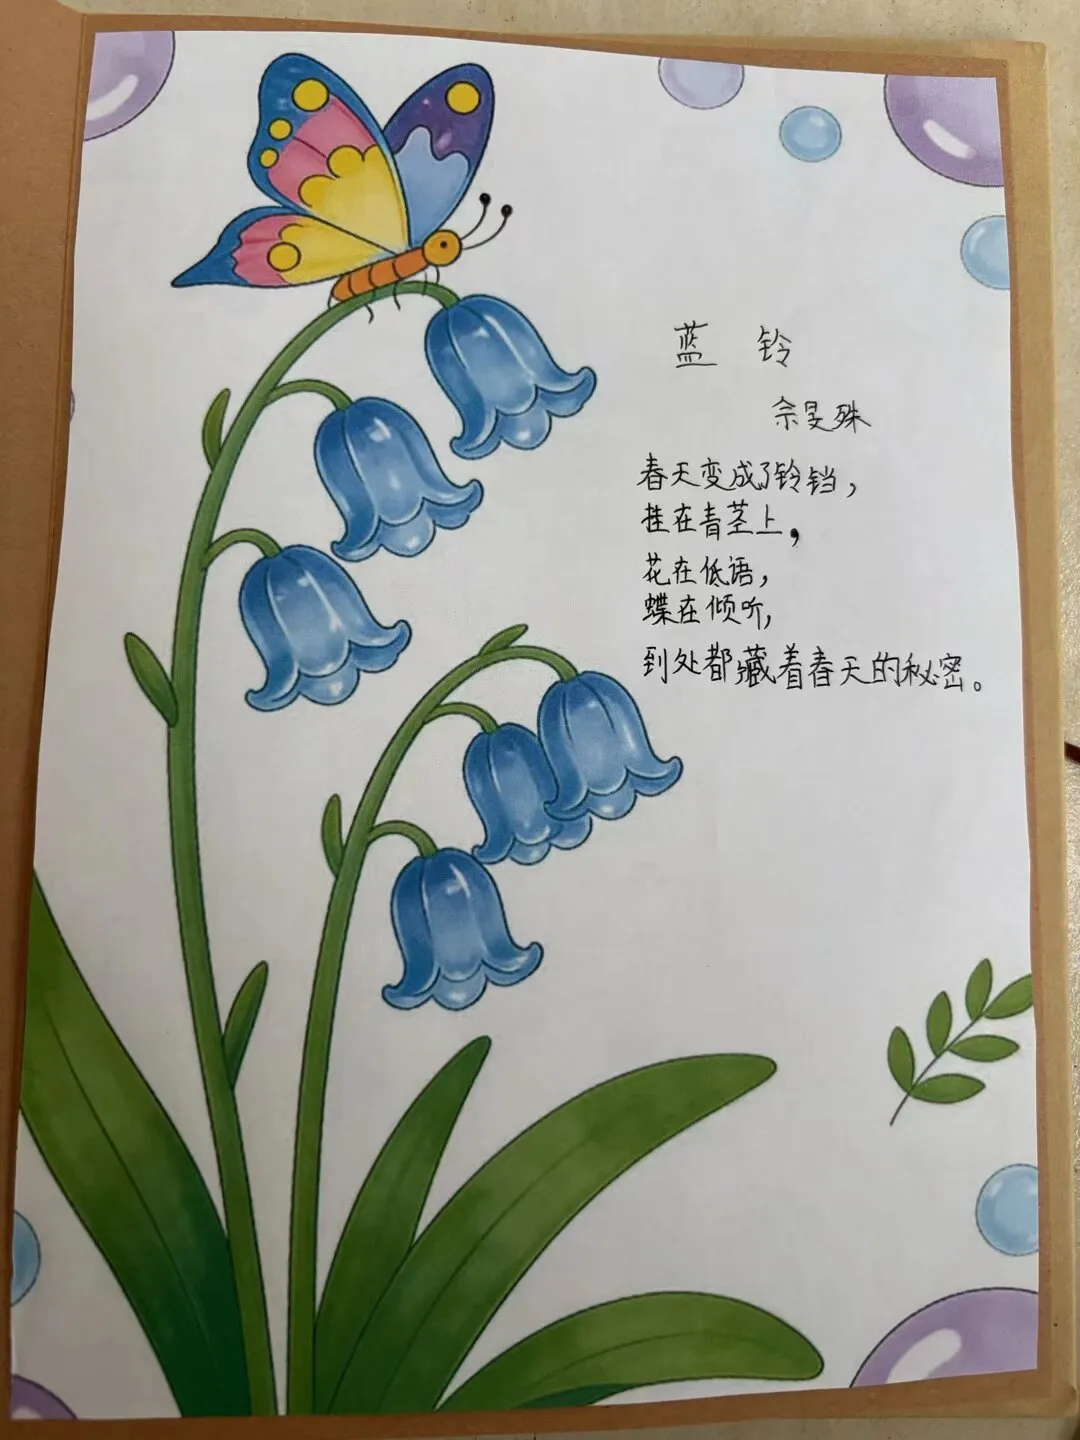 蓝 铃
佘旻殊
春天变成了铃铛，
挂在青茎上，
花在低语，
蝶在倾听，
到处都藏着春天的秘密。